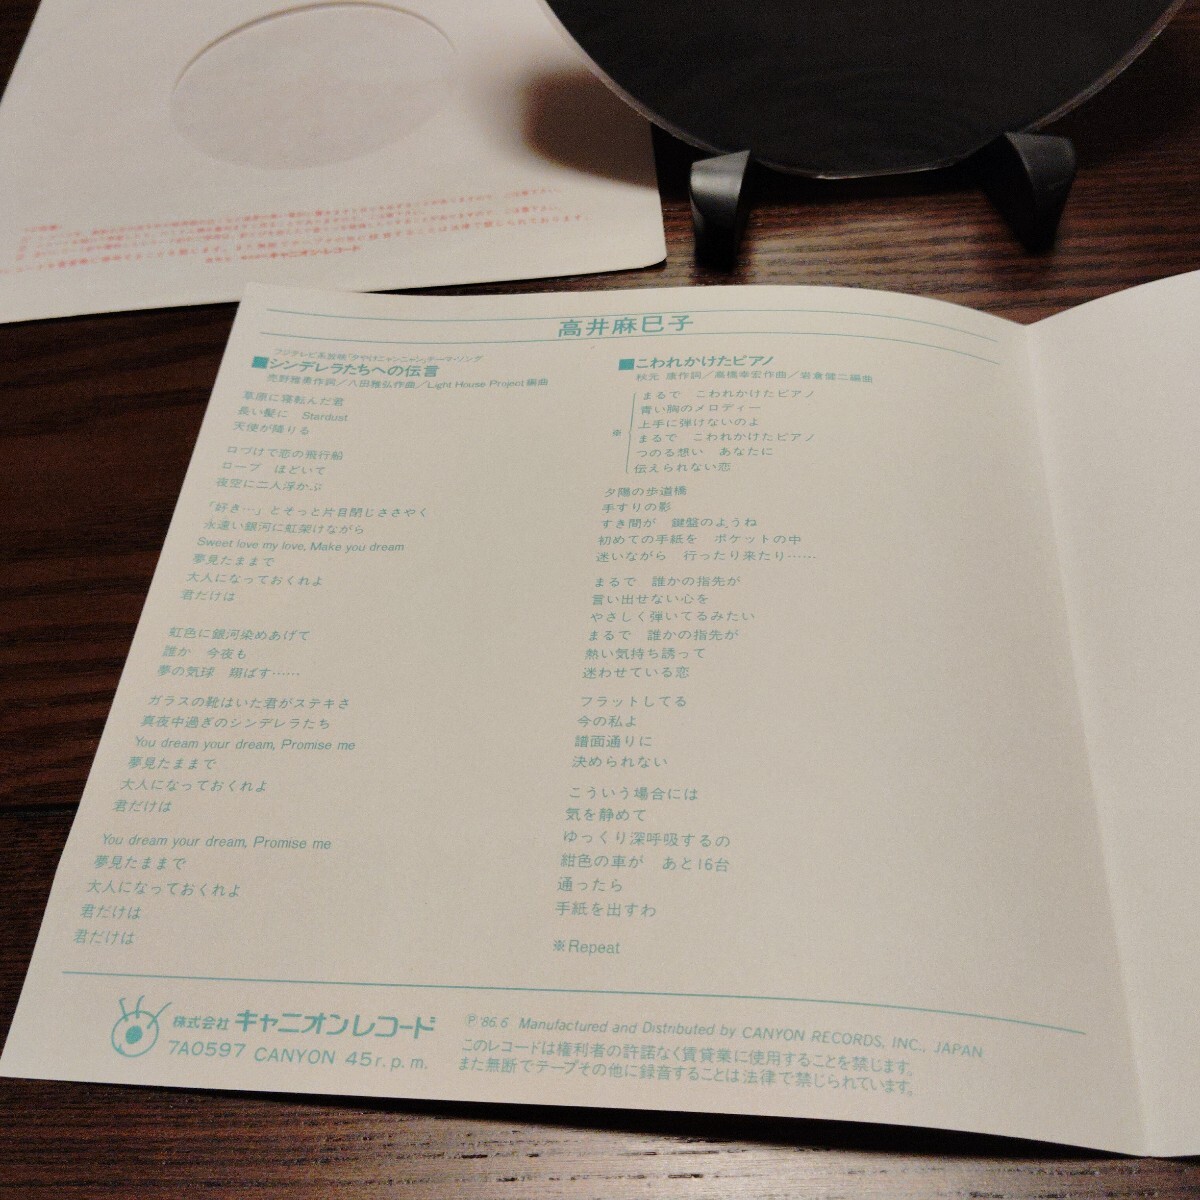 キャニオン・レコード
高井麻巳子
フジテレビ系放映「夕やけニャンニャン」テーマ・ソング
■シンデレラたちへの伝言
売野雅勇作詞／八田雅弘作曲／Light House Project編曲
草原に寝転んだ君
長い髪に Stardust
天使が降りる
口づけで恋の飛行船
ロープ ほどいて
夜空に二人浮かぶ
「好き…」とそっと片目閉じささやく
永遠い銀河に虹架けながら
Sweet love my love, Make you dream
夢見たままで
大人になっておくれよ
君だけは
虹色に銀河染めあげて
誰か 今夜も
夢の気球 翔ばす……
ガラスの靴はいた君がステキさ
真夜中過ぎのシンデレラたち
You dream your dream, Promise me
夢見たままで
大人になっておくれよ
君だけは
You dream your dream, Promise me
夢見たままで
大人になっておくれよ
君だけは
君だけは
■こわれかけたピアノ
秋元 康作詞／高橋幸宏作曲／岩倉健二編曲
※
まるで こわれかけたピアノ
青い胸のメロディー
上手に弾けないのよ
まるで こわれかけたピアノ
つのる想い あなたに
伝えられない恋
夕陽の歩道橋
手すりの影
すき間が 鍵盤のようね
初めての手紙を ポケットの中
迷いながら 行ったり来たり……
まるで 誰かの指先が
言い出せない心を
やさしく弾いてるみたい
まるで 誰かの指先が
熱い気持ち誘って
迷わせている恋
フラットしてる
今の私よ
譜面通りに
決められない
こういう場合には
気を静めて
ゆっくり深呼吸するの
紺色の車が あと16台
通ったら
手紙を出すわ
※Repeat
株式会社 キャニオンレコード
7A0597 CANYON 45r.p.m.
Ⓟ'86.6 Manufactured and Distributed by CANYON RECORDS, INC., JAPAN
このレコードは権利者の許諾なく賃貸業に使用することを禁じます。
また無断でテープその他に録音することは法律で禁じられています。